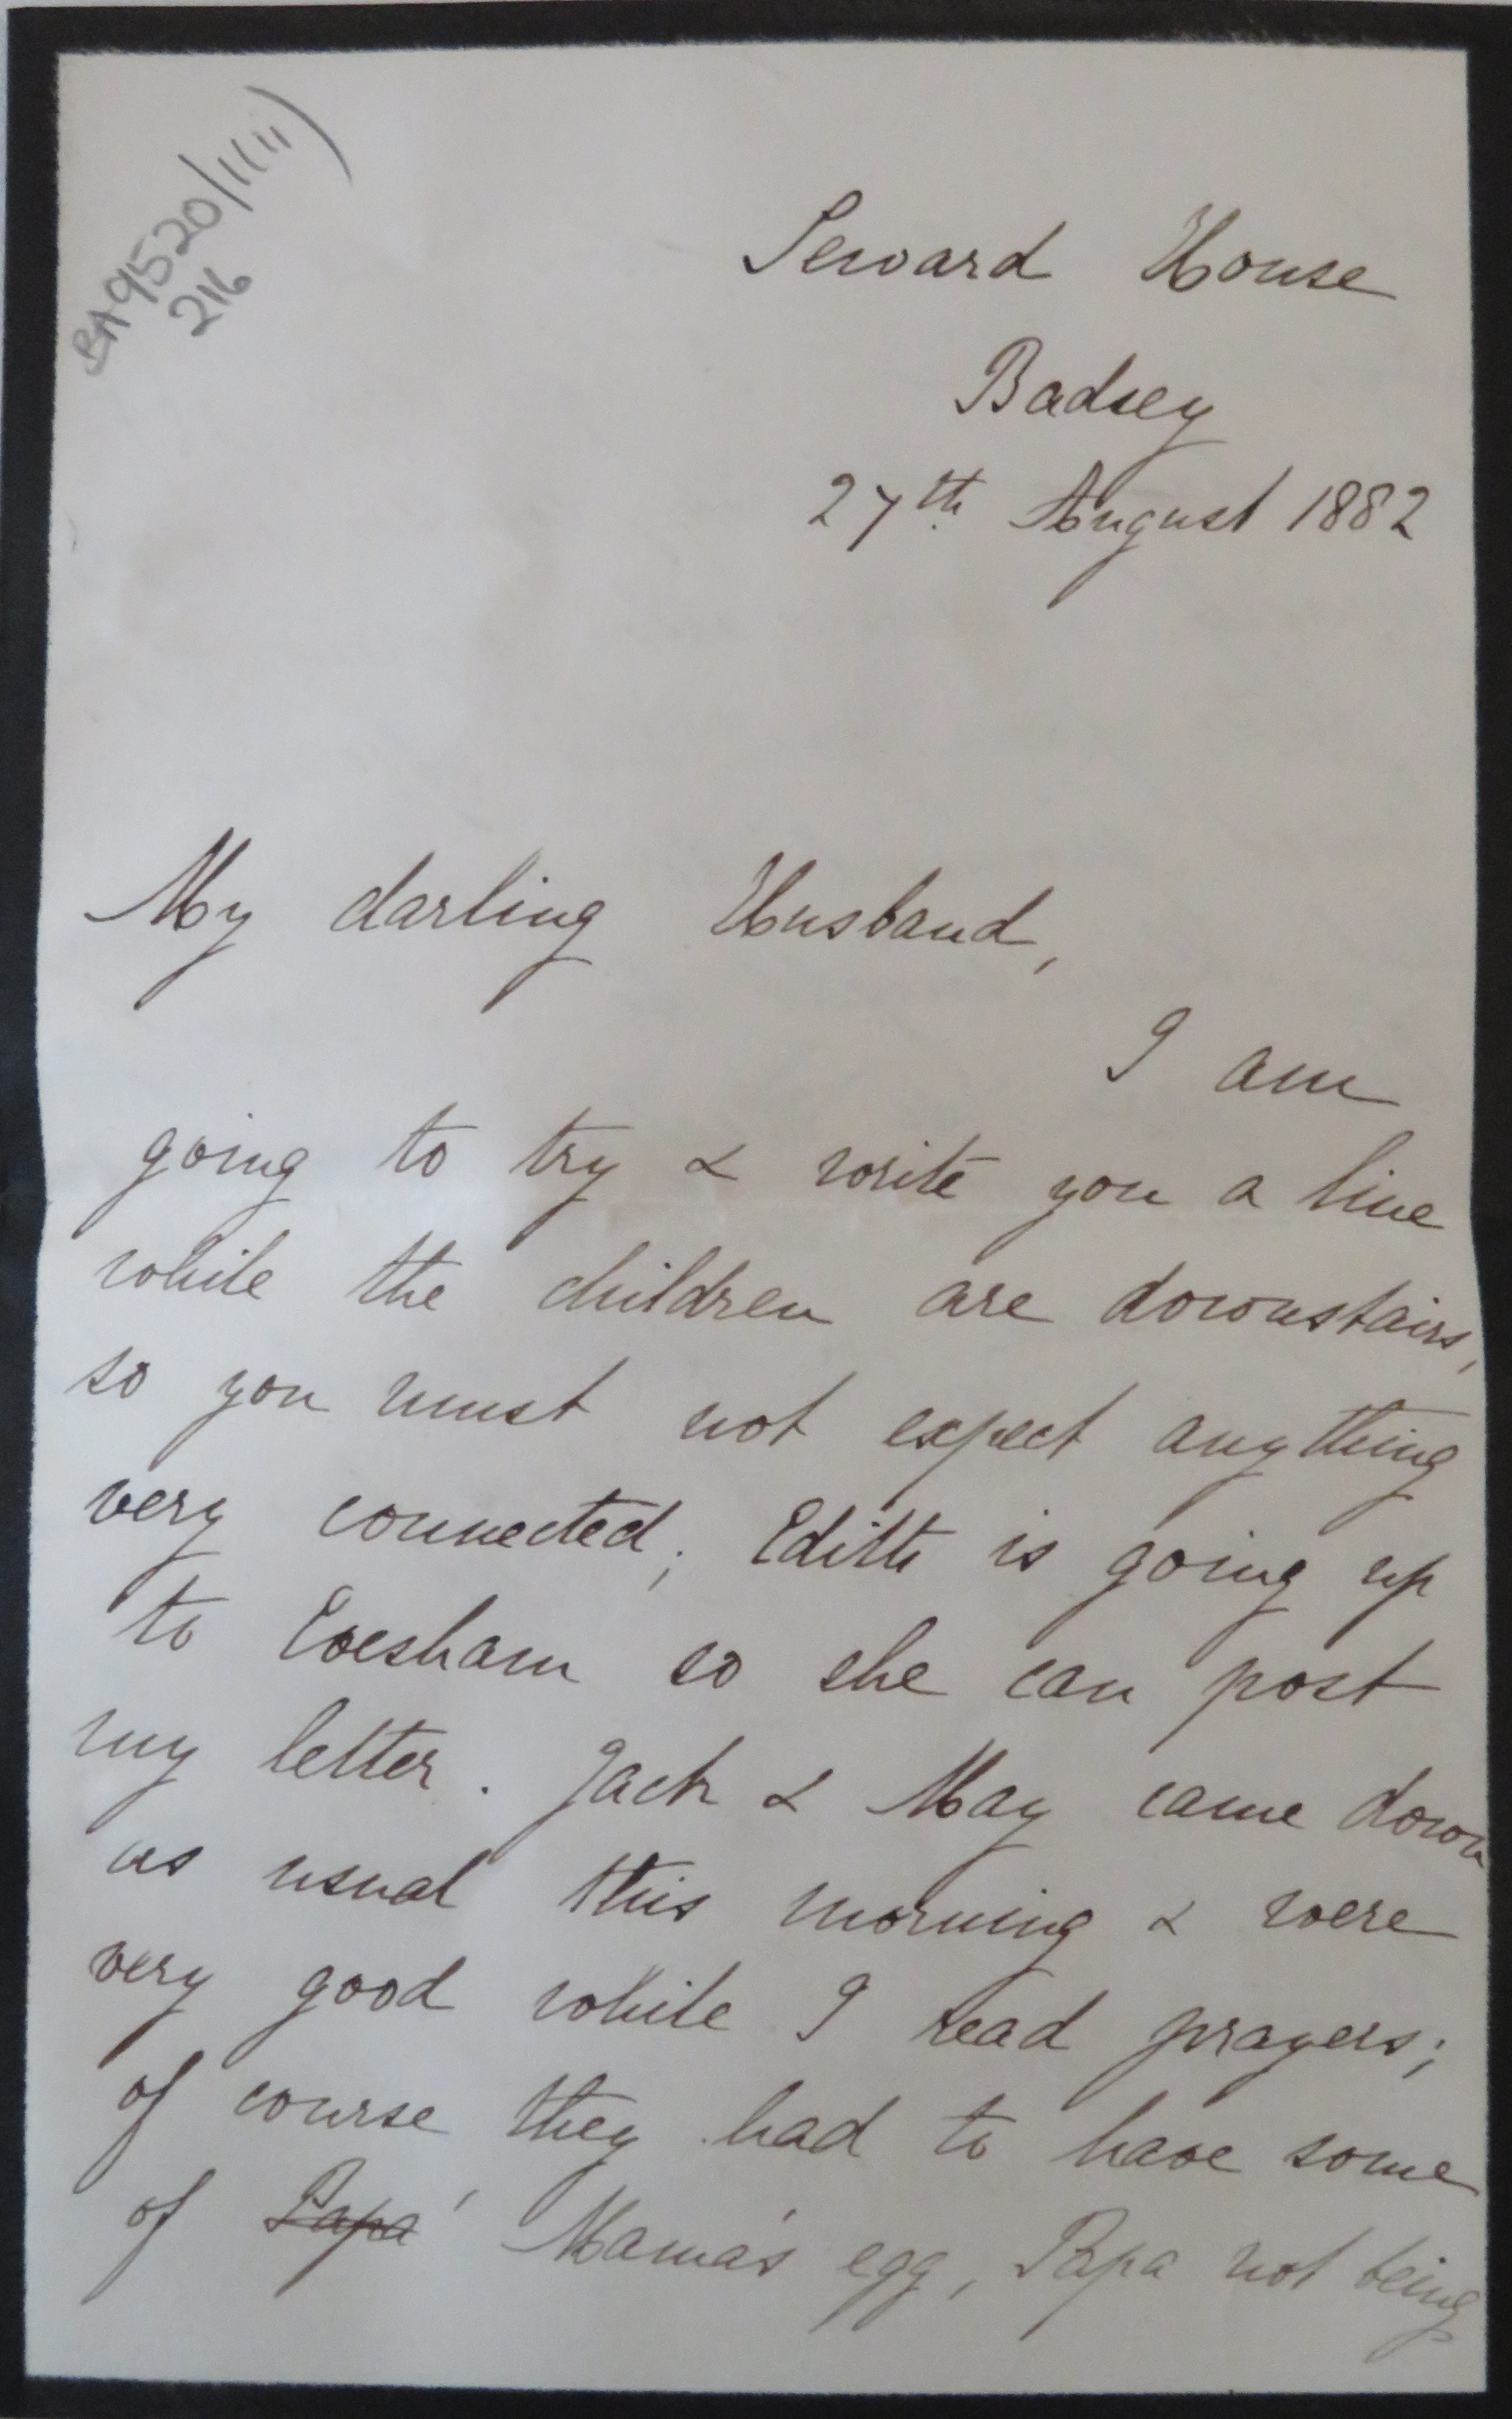 BA9520/11(ii)
216
Seward House
Badsey
27th August 1882
My darling Husband,
I am
going to try & write you a line
while the children are downstairs,
so you must not expect anything
very connected; Edith is going up
to Evesham so she can post
my letter. Jack & May came down
as usual this morning & were
very good while I read prayers;
of course they had to have some
of Papa' Mama's egg, Papa not being